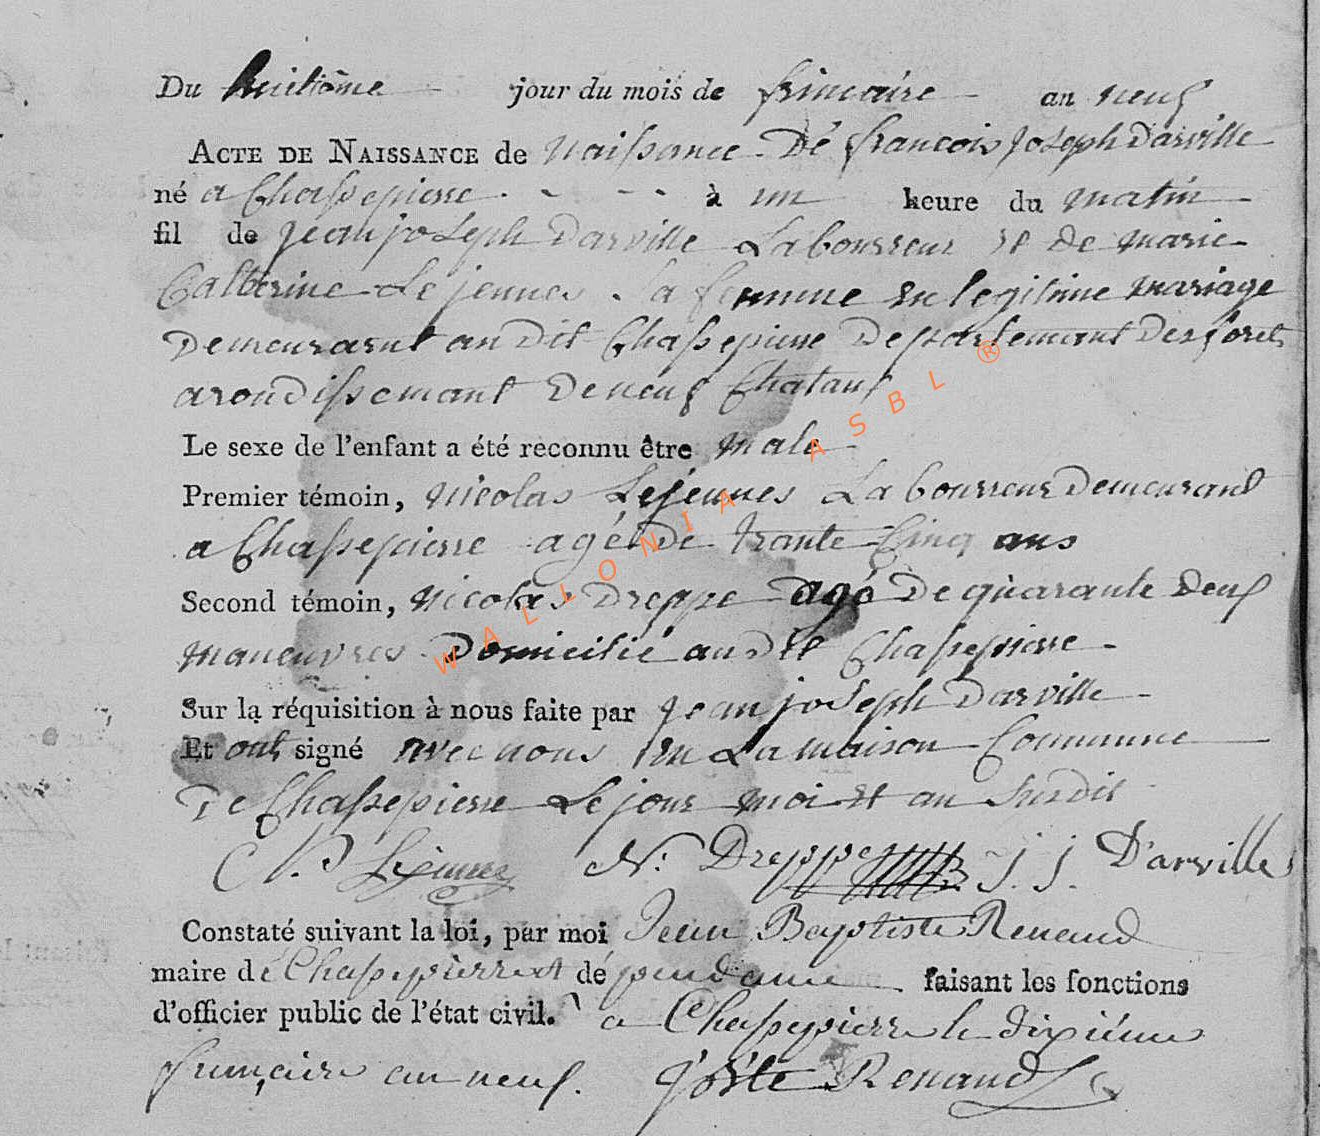 Du huitième jour du mois de frimaire an neuf
ACTE DE NAISSANCE de naissance Dé francois joseph Darville
né a Chassepierre à un heure du matin
fil de jean joseph Darville Laboureur et de marie
Catterine Lejeunes sa femme en legitime mariage
Demeurant au Dit Chassepierre Departemant Des foret
arondissemant De neuf Chataux
Le sexe de l'enfant a été reconnu être male
Premier témoin, nicolas Lejeunes Laboureur Demeurant
a Chassepierre agé De trante Cinq ans
Second témoin, nicolas Dreppe agé De quarante Deuf
maneuvres Domicilié au Dit Chassepierre
Sur la réquisition à nous faite par jean joseph Darville
Et ont signé avec nous en La maison Commune
De Chassepierre Le jour moi et an Susdit
N. Lejeunes N. Dreppe J. J. D'arville
Constaté suivant la loi, par moi Jean Baptiste Renaud
maire dé Chassepierre et dépendance faisant les fonctions
d'officier public de l'état civil. a Chassepierre le dixiéme
frimaire an neuf. Renaud
WALLONIA ASBL ®